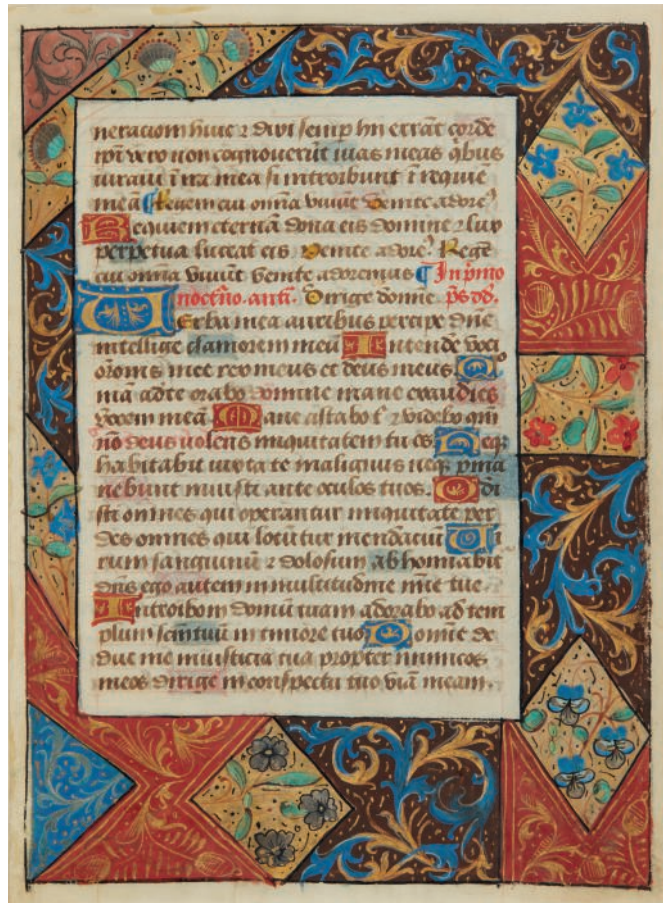 neracioni huic ⁊ dixi semp hii errāt corde
ipī vero non cognoverūt uias meas qͥbus
iuraui ī ira mea si introibunt ī requiē
meā Regem cui om̄ia viuūt Venite adore
Requiem eternā dona eis domine ⁊ lux
perpetua luceat eis Venite adore Regē
cui om̄ia viuūt Venite adoremus In p̄mo
noct̄no. anti. Dirige domīe p̄s dd̄.
Verba mea auribus percipe dn̄e
intellige clamorem meā Intende voci
or̄onis mee rex meus et deus meus. Qͦ
niā ad te orabo domine mane exaudies
vocem meā Mane astabo t̄ ⁊ videbo qm̄
nō deus uolens iniquitatem tu es. Neqꝫ
habitabit iuxta te malignus neqꝫ p̄ma
nebunt iniusti ante oculos tuos. Odi
sti omnes qui operantur iniquitatē per
des omnes qui locūtur mendaciū Vi
rum sanguinū ⁊ dolosum abhominabit
dn̄s ego autem in multitudine mīe tue
Introibo in domū tuam adorabo ad tem
plum sanctū tuū in timore tuo Domīe de
duc me in iusticia tua propter inimicos
meos dirige in conspectu tuo viā meam.